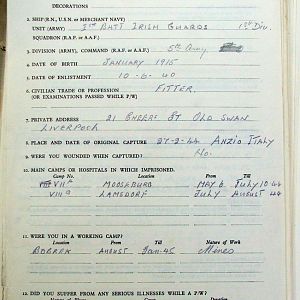 DECORATIONS
2. SHIP (R.N., U.S.N. or MERCHANT NAVY)
UNIT (ARMY) 1st BATT IRISH GUARDS 1st DIV.
SQUADRON (R.A.F. or A.A.F.)
3. DIVISION (ARMY), COMMAND (R.A.F. or A.A.F.) 5th Army
4. DATE OF BIRTH JANUARY 1915
5. DATE OF ENLISTMENT 10-6-40
6. CIVILIAN TRADE OR PROFESSION FITTER.
(OR EXAMINATIONS PASSED WHILE P/W)
7. PRIVATE ADDRESS 21 ST OLD SWAN
LIVERPOOL
8. PLACE AND DATE OF ORIGINAL CAPTURE 27-2-44 ANZIO ITALY
9. WERE YOU WOUNDED WHEN CAPTURED? No.
10. MAIN CAMPS OR HOSPITALS IN WHICH IMPRISONED.
Camp No. Location From Till
VIIA MOOSEBURG MAY 6 July 10 44
VIIIB LAMSDORF JULY AUGUST 44
11. WERE YOU IN A WORKING CAMP?
Location From Till Nature of Work
AUGUST Jan-45 Mines
12. DID YOU SUFFER FROM ANY SERIOUS ILLNESSES WHILE A P/W?